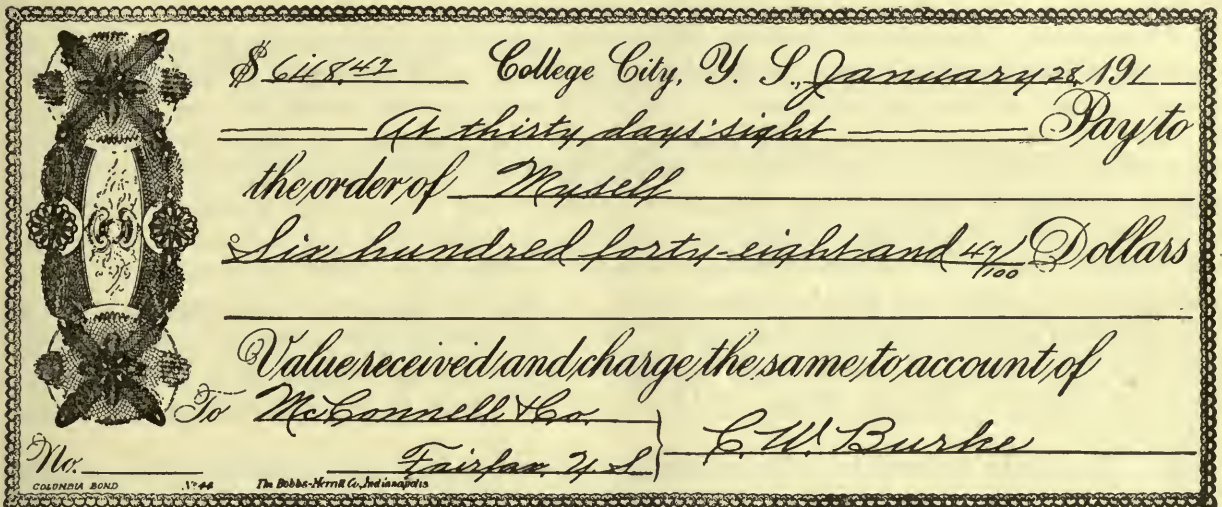 $ 648.47 College City, Y. S., January 28, 191
At thirty days' sight Pay to
the order of Myself
Six hundred forty-eight and 47/100 Dollars
Value received and charge the same to account of
To McConnell & Co.
C. W. Burke
Fairfax, Y. S.
No.
COLUMBIA BOND No 44 The Bobbs-Merrill Co., Indianapolis